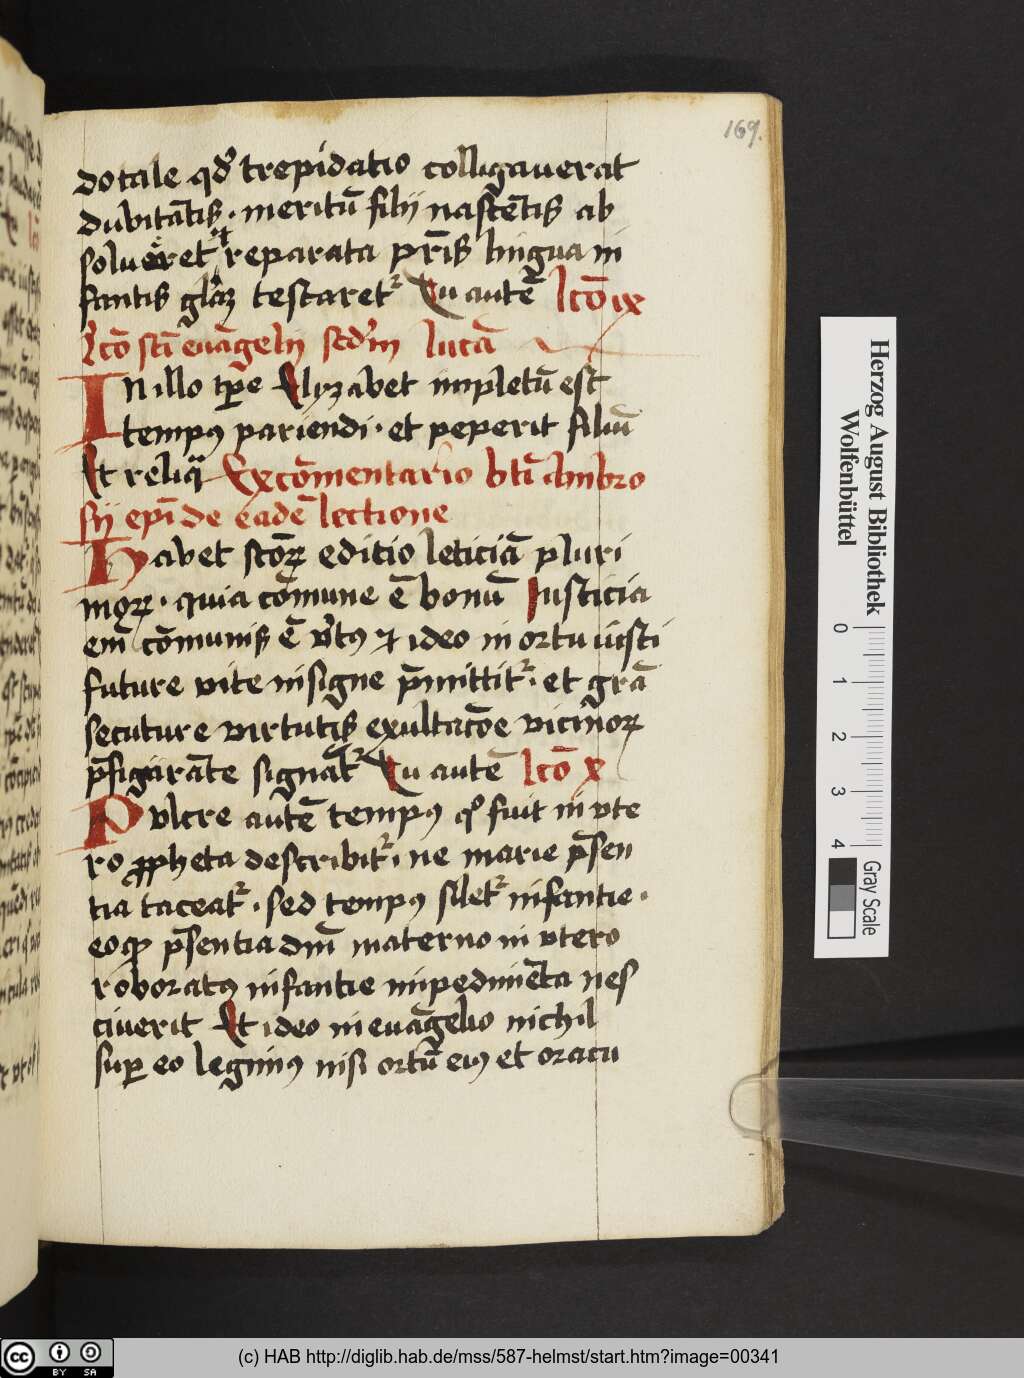 169.
dotale qđ trepidatio colligauerat
dubitātis · meritū filij nascētis ab
solueret et reparata pr̄is lingua in
fantis gl̄aꝫ testaretᷣ Tu autē lcō ix
lcō sc̄i euāgelij scd̓m lucā
In illo tp̄e Elyzabet impletū est
tempꝯ pariendi · et peperit filiū
Et reliq̄ Ex cōmentario bt̄i Ambro
sij ep̄i de eadē lectione
Habet sc̄oꝝ editio leticiā pluri
moꝝ · quia cōmune ē bonū Iusticia
em̄ cōmunis ē v̓tꝯ ⁊ ideo in ortu iusti
future vite insigne p̄mittitᷣ · et gr̄a
secuture virtutis exultac̄oe vicinoꝝ
p̄figurāte signatᷣ Tu autē lcō x
Pulcre autē tempꝯ qͦ fuit in vte
ro ꝓpheta describitᷣ · ne marie p̄sen
tia taceatᷣ · sed tempꝯ siletᷣ infantie ·
eo qꝫ p̄sentia dn̄i materno in vtero
roboratꝯ infantie impedimēta nes
ciuerit Et ideo in euāgelio nichil
suꝑ eo legimꝯ nisi ortū eiꝯ et oracu
Herzog August Bibliothek
Wolfenbüttel
0 1 2 3 4
Gray Scale
cc BY SA
(c) HAB http://diglib.hab.de/mss/587-helmst/start.htm?image=00341